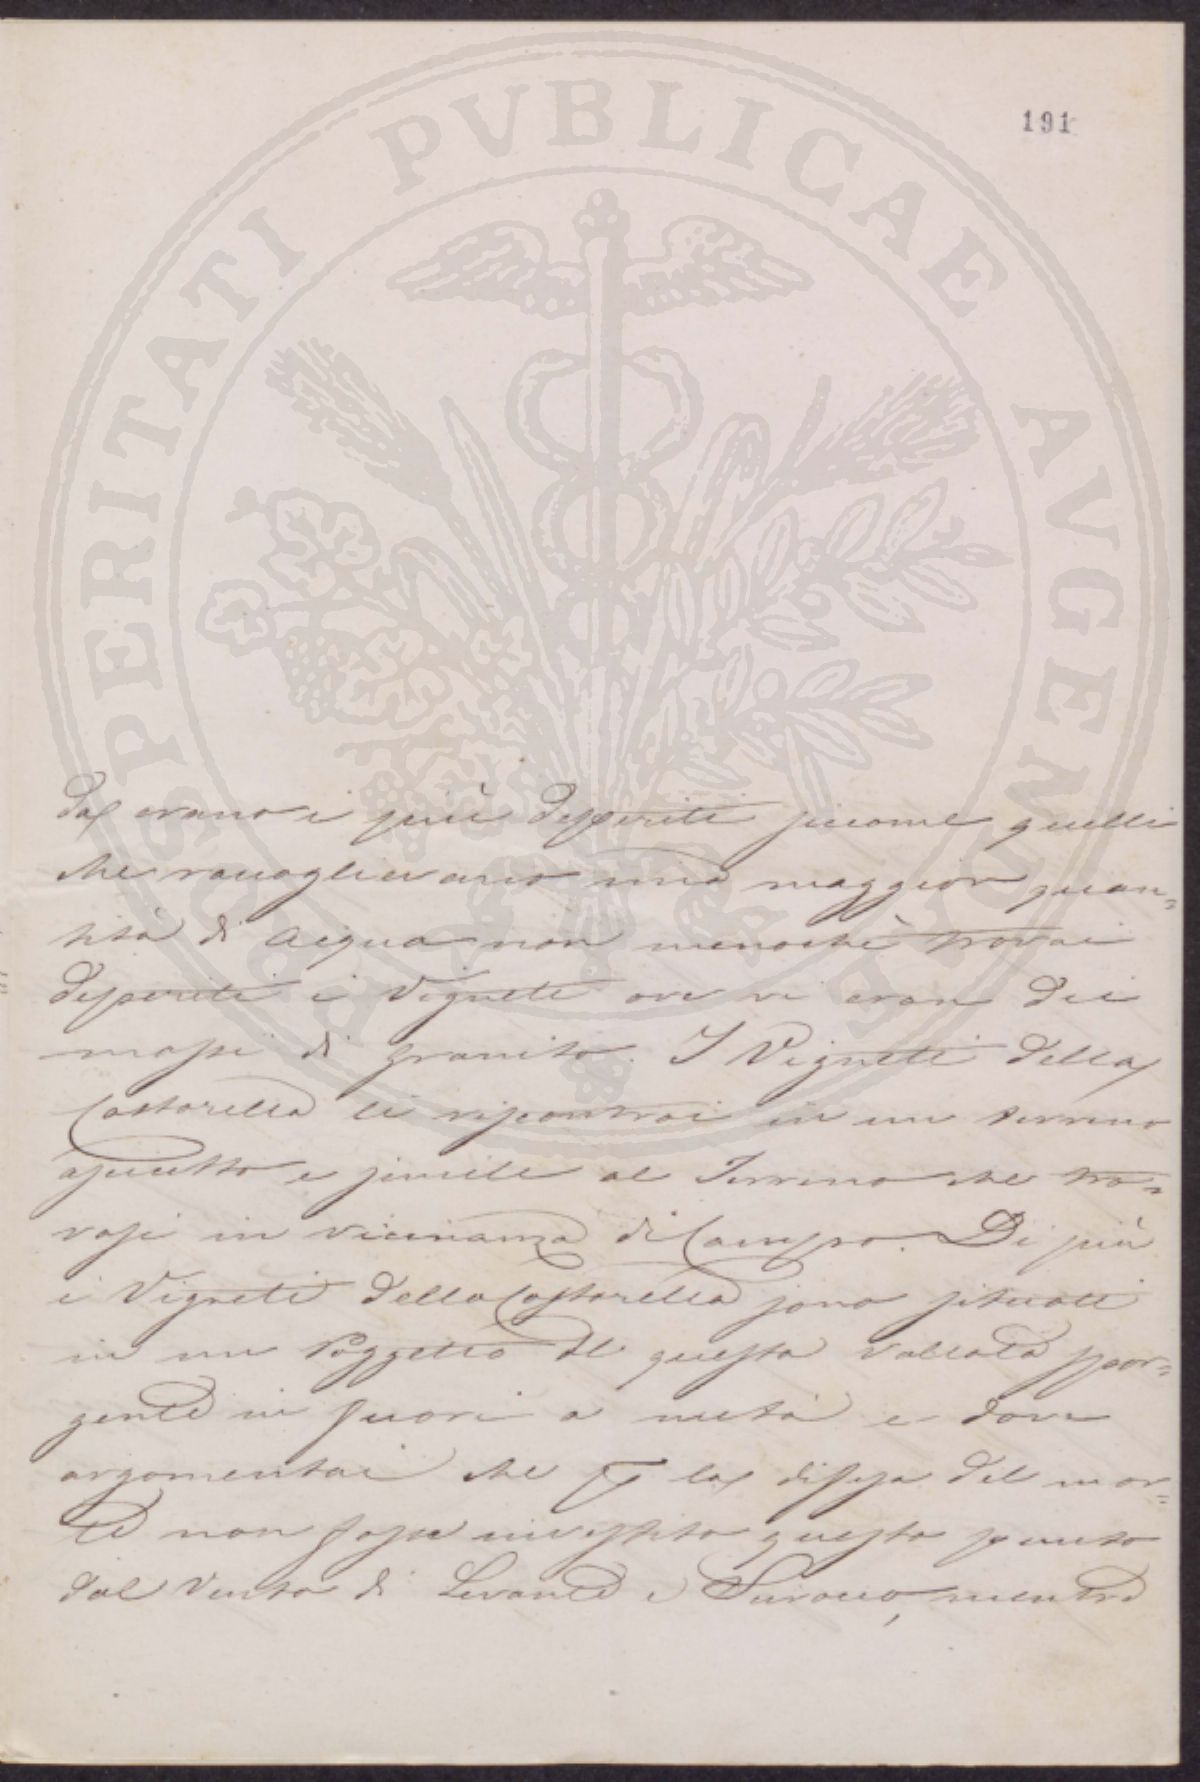 191
da erano i più deperiti siccome quelli
che raccoglievano una maggior quan=
tità di acqua non menochè trovai
deperiti i Vigneti ove vi eran dei
massi di granito. I Vigneti della
Costarella li riscontrai in un terreno
asciutto e simile al Terreno che tro=
vasi in vicinanza di Campo. Di più
i Vigneti della Costarella sono situati
in un Poggetto di questa Vallata spor=
gente in fuori a metà e dove
argomentai che per la difesa del mon=
te non fosse investito questo punto
dal Vento di Levante e Sirocco, mentre
PERITATI PVBLICAE AVGEN